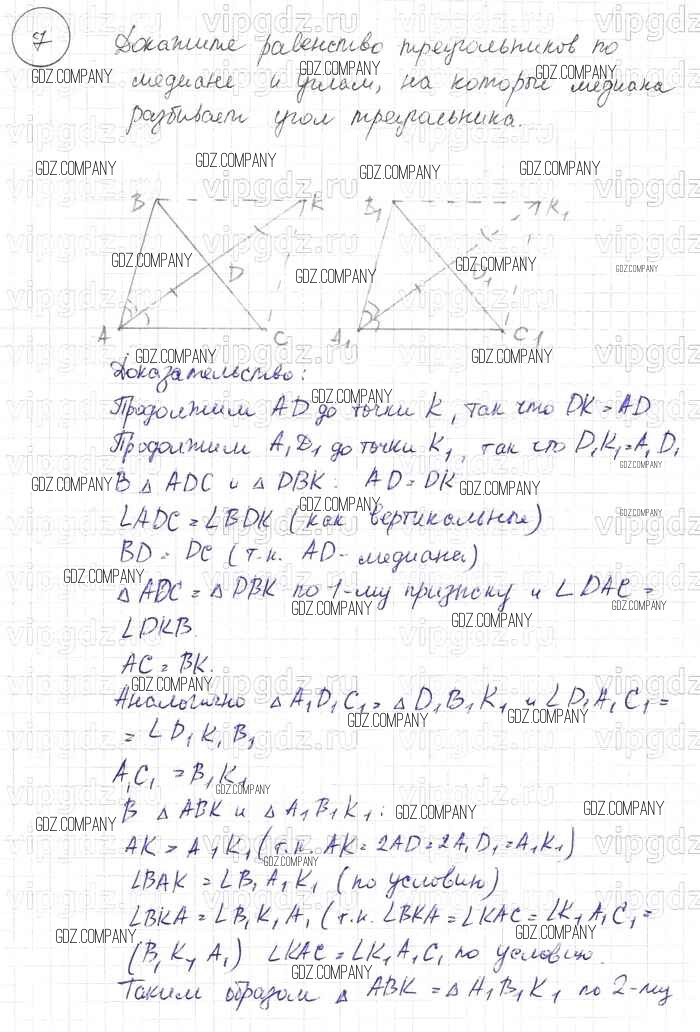 7
Докажите равенство треугольников по
медиане и углам, на которые медиана
разбивает угол треугольника.
B K B₁ K₁
D D₁
A C A₁ C₁
Доказательство:
Продолжим AD до точки K, так что DK = AD
Продолжим A₁D₁ до точки K₁, так что D₁K₁=A₁D₁
В △ ADC и △ DBK: AD = DK
∠ADC = ∠BDK (как вертикальные)
BD = DC (т.к. AD - медиана)
△ ADC = △ DBK по 1-му признаку и ∠DAC =
∠DKB.
AC = BK.
Аналогично △ A₁D₁C₁ = △ D₁B₁K₁ и ∠D₁A₁C₁ =
= ∠D₁K₁B₁
A₁C₁ = B₁K₁
В △ ABK и △ A₁B₁K₁:
AK = A₁K₁ (т.к. AK = 2AD = 2A₁D₁ = A₁K₁)
∠BAK = ∠B₁A₁K₁ (по условию)
∠BKA = ∠B₁K₁A₁ (т.к. ∠BKA = ∠KAC = ∠K₁A₁C₁ =
(B₁K₁A₁) ∠KAC = ∠K₁A₁C₁ по условию.
Таким образом △ ABK = △ A₁B₁K₁ по 2-му
GDZ.COMPANY
vipgdz.ru